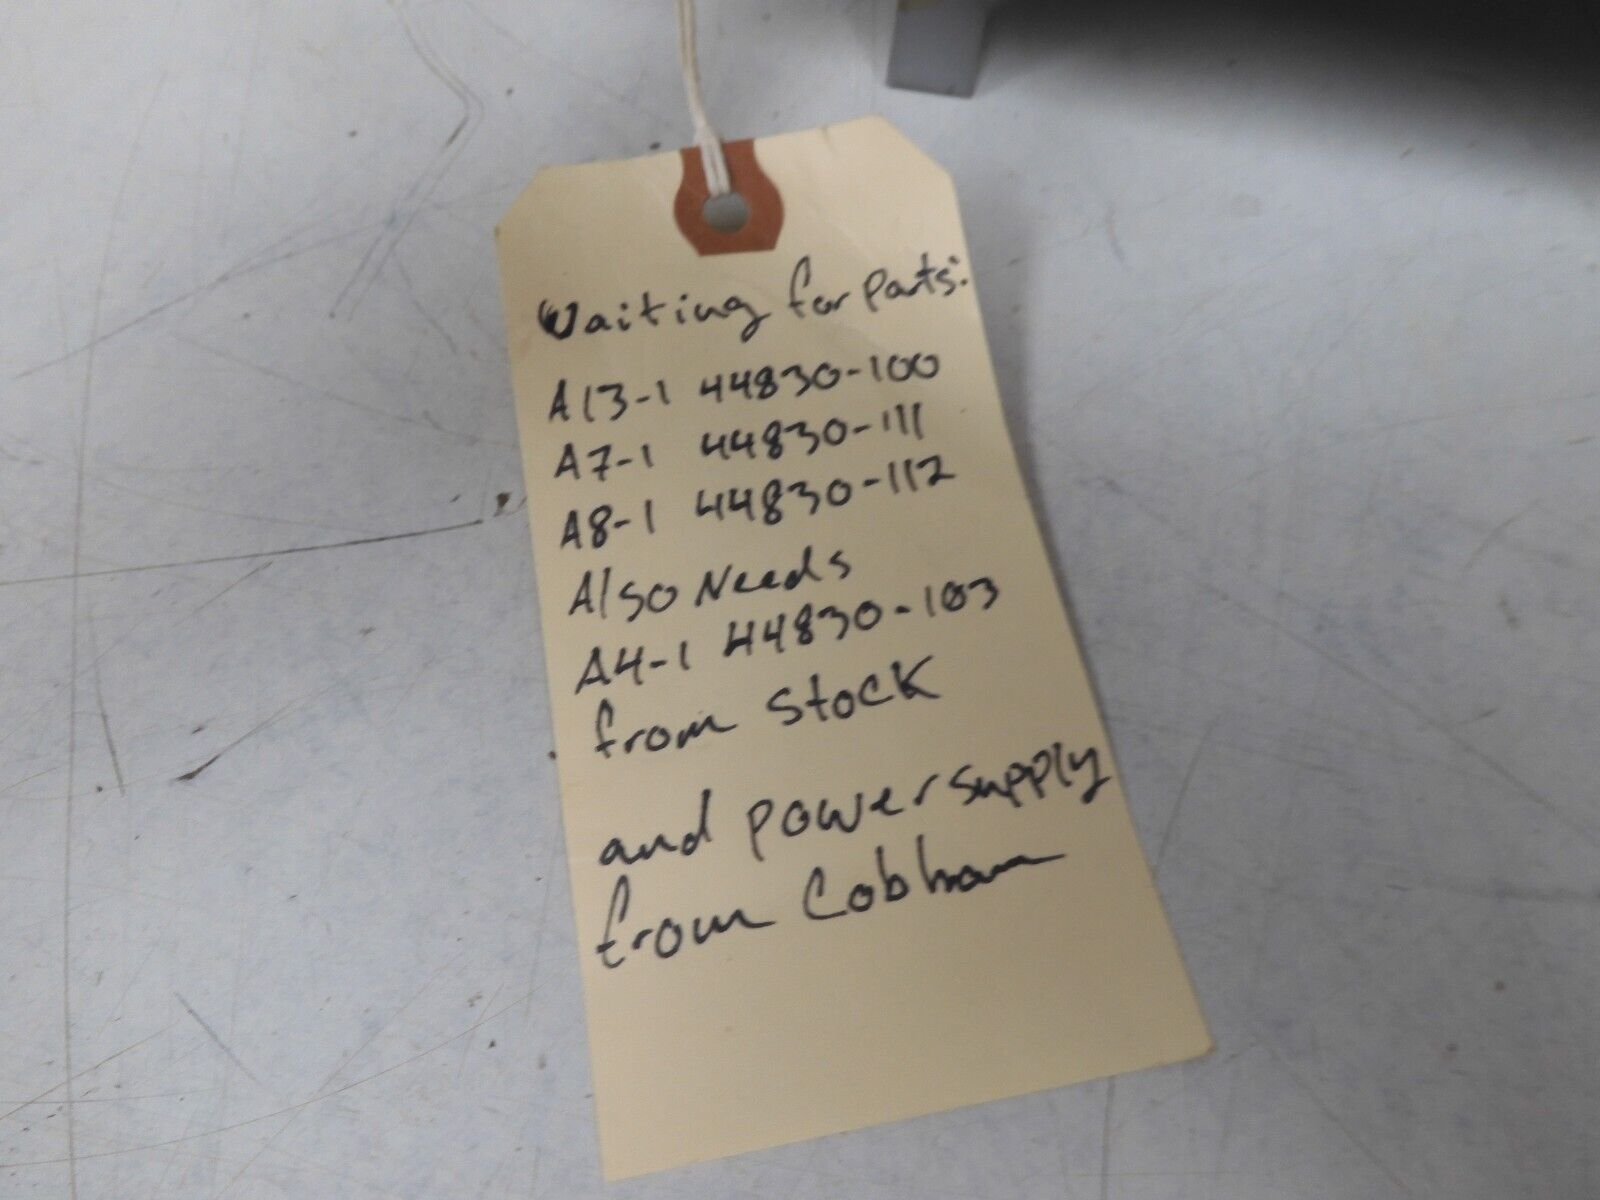 Waiting for Parts:
A13-1 44830-100
A7-1 44830-111
A8-1 44830-112
Also Needs
A4-1 44830-103
from Stock
and power supply
from Cobham